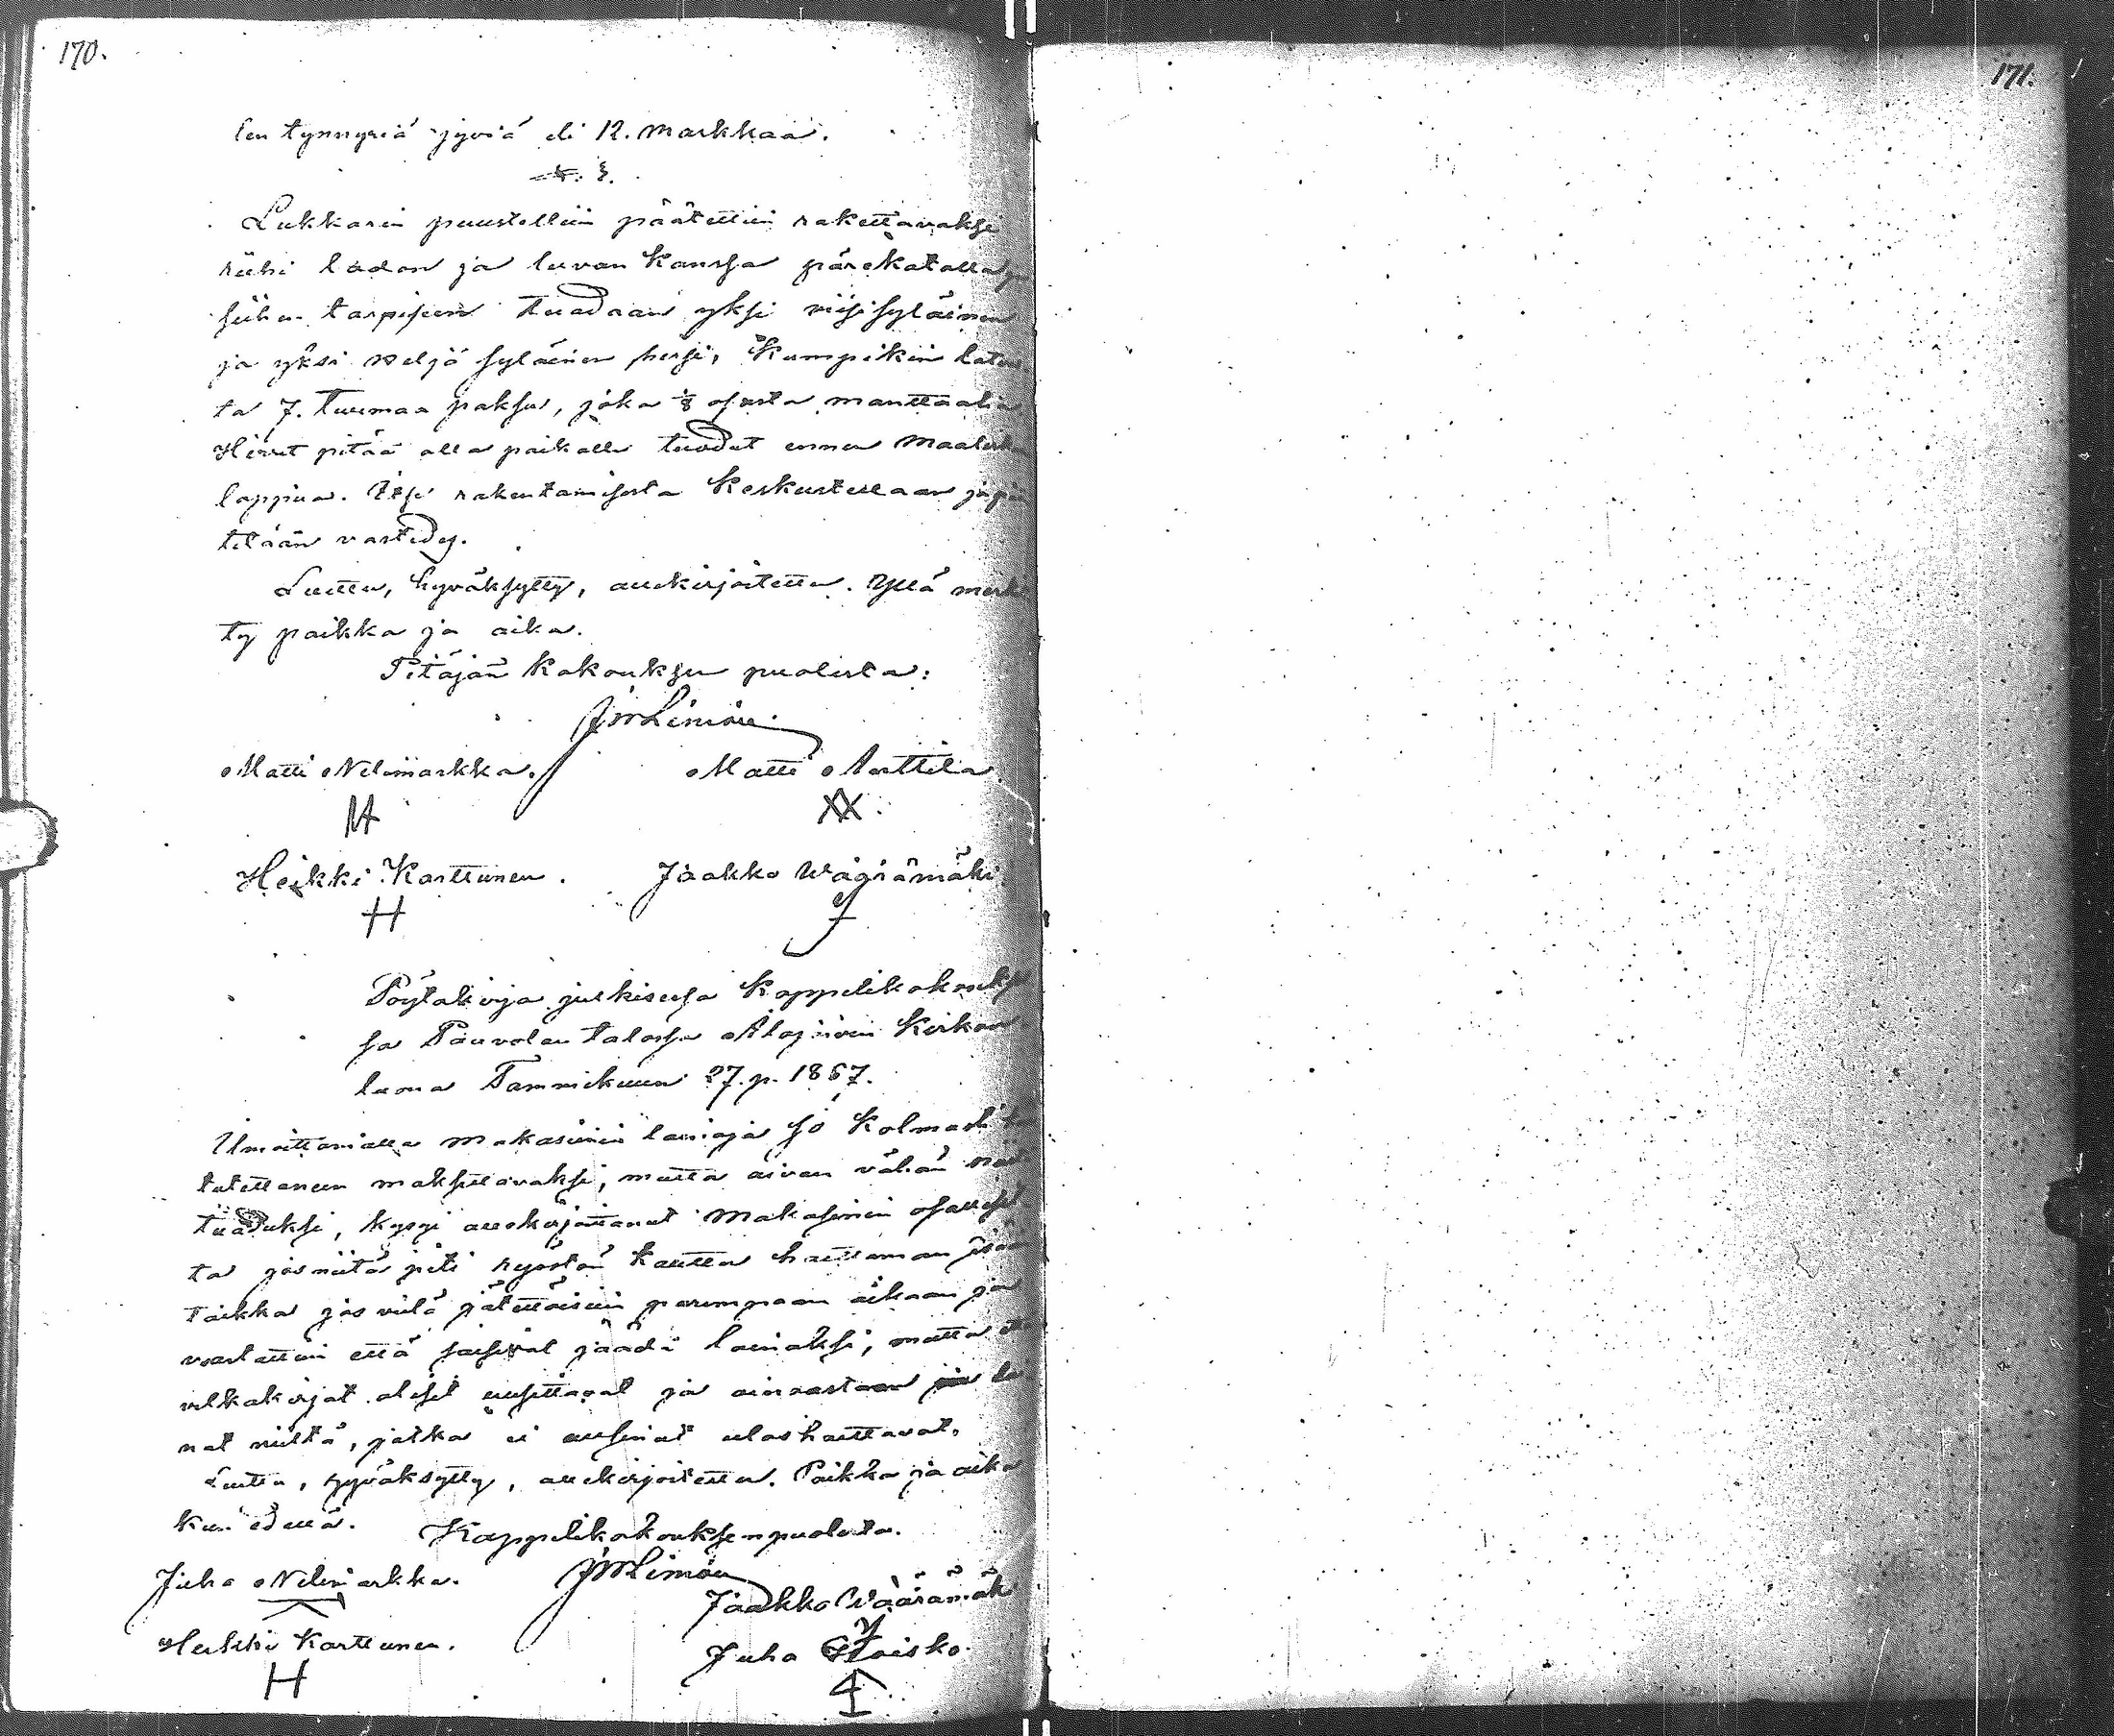 170.
171.
len tynnyriä jyviä eli 12. markkaa.
4. §.
Lukkarin puustelliin päätettiin rakettavaksi
riihi ladon ja luvan kanssa pärekatolla ja
siihen tarpeseen tuodaan yksi viisisyläinen
ja yksi neljä syläinen hirsi, kumpikin latvas
ta 7. tuumaa paksu, joka 1/8 osasta manttaalia
Hirret pitää olla paikalle tuodut ennen Maalisk
loppua. Itse rakentamisesta keskustellaan ja pää
tetään vastedes.
Luettu, hyväksytty, allekirjoitettu. Yllä merkit
ty paikka ja aika.
Pitäjän kokouksen puolesta:
Matti Nelimarkka. Matti Anttila
Heikki Karttunen. Jaakko Wääränmäki
Pöytäkirja julkisessa Kappelikokoukse
sa Pauvolan talossa Alajärven kirkon
luona Tammikuun 27. p. 1867.
Ilmoittamalla makasiinin lainoja jo kolmasti
tutettaneen maksettavaksi, mutta aivan vähän
tuoduksi, kysyi allekirjoittanut Makasiinin osallisil
ta jos niitä piti ryöstön kautta haettaman sisään
taikka jos vielä jätettäisiin parempaan aikaan ja
vastattiin että saisivat jäädä lainaksi, mutta
velkakirjat olisit uusittavat ja ainoastaan
nat niiltä, jotka ei uusinut uloshaettavat.
Luettu, hyväksytty, allekirjoitettu. Paikka ja aika
kun edellä. Kappelikokouksen puolesta.
Juho Nelimarkka. Jaakko Wääränmäk
Heikki Karttunen. Juho Hoisko.